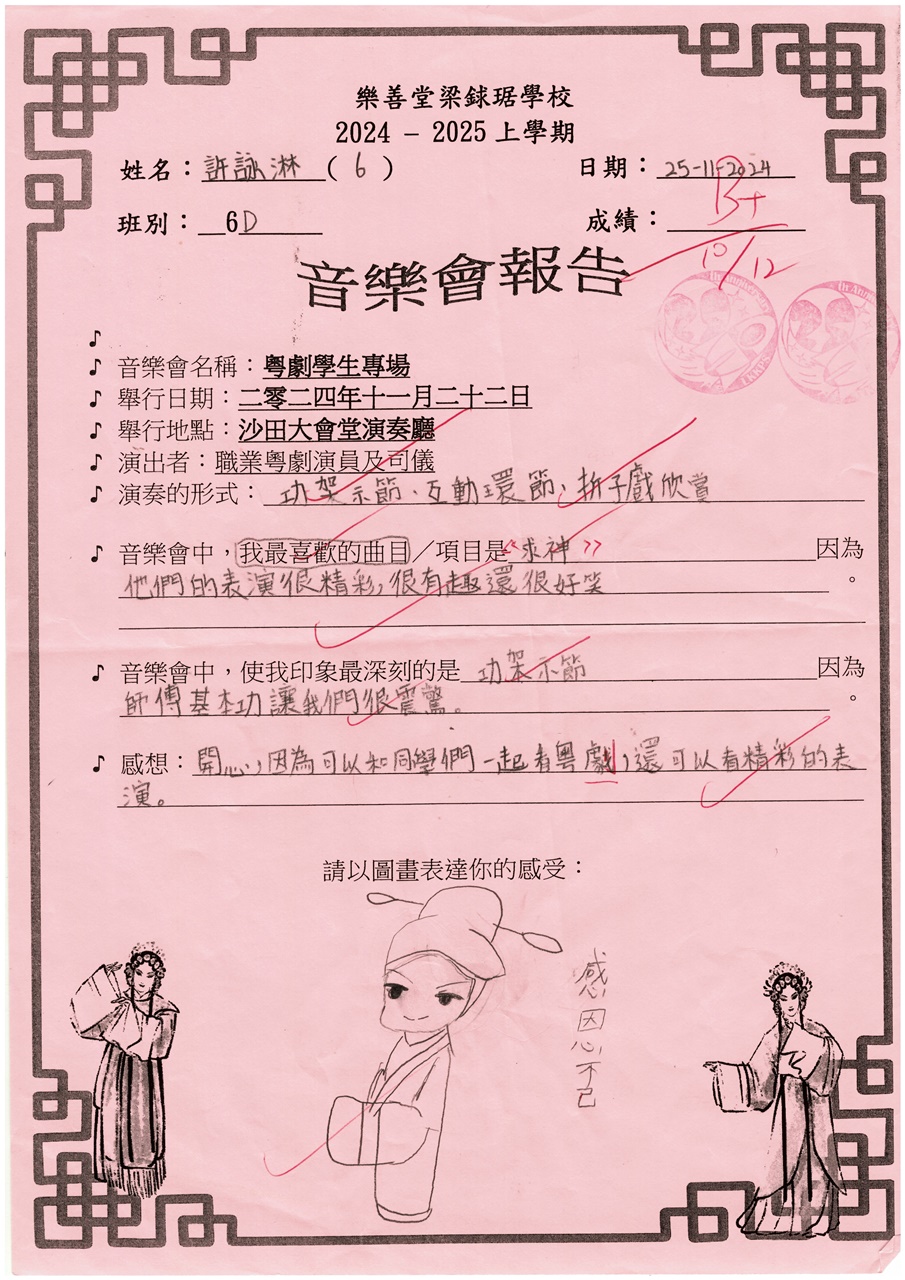 樂善堂梁銶琚學校
2024 – 2025 上學期
姓名：許詠淋 ( 6 ) 日期：25-11-2024
班別：6D 成績：B+
10/12
音樂會報告
♪
♪ 音樂會名稱：粵劇學生專場
♪ 舉行日期：二零二四年十一月二十二日
♪ 舉行地點：沙田大會堂演奏廳
♪ 演出者：職業粵劇演員及司儀
♪ 演奏的形式：功架示節、互動環節、折子戲欣賞
♪ 音樂會中，我最喜歡的曲目／項目是《求神》因為
他們的表演很精彩，很有趣還很好笑。
♪ 音樂會中，使我印象最深刻的是 功架示節 因為
師傅基本功讓我們很震驚。。
♪ 感想：開心，因為可以和同學們一起看粵戲，還可以看精彩的表
演。
請以圖畫表達你的感受：
感恩不已